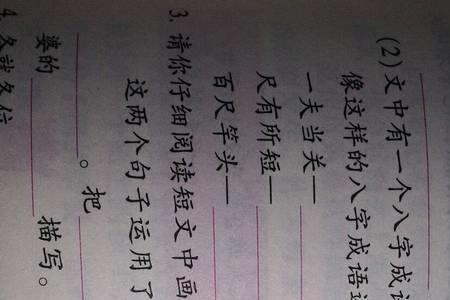 (2)文中有一个八字成语
像这样的八字成语还
一夫当关—
尺有所短—
百尺竿头—
3. 请你仔细阅读短文中画
这两个句子运用了
。把
婆的 描写。
4.